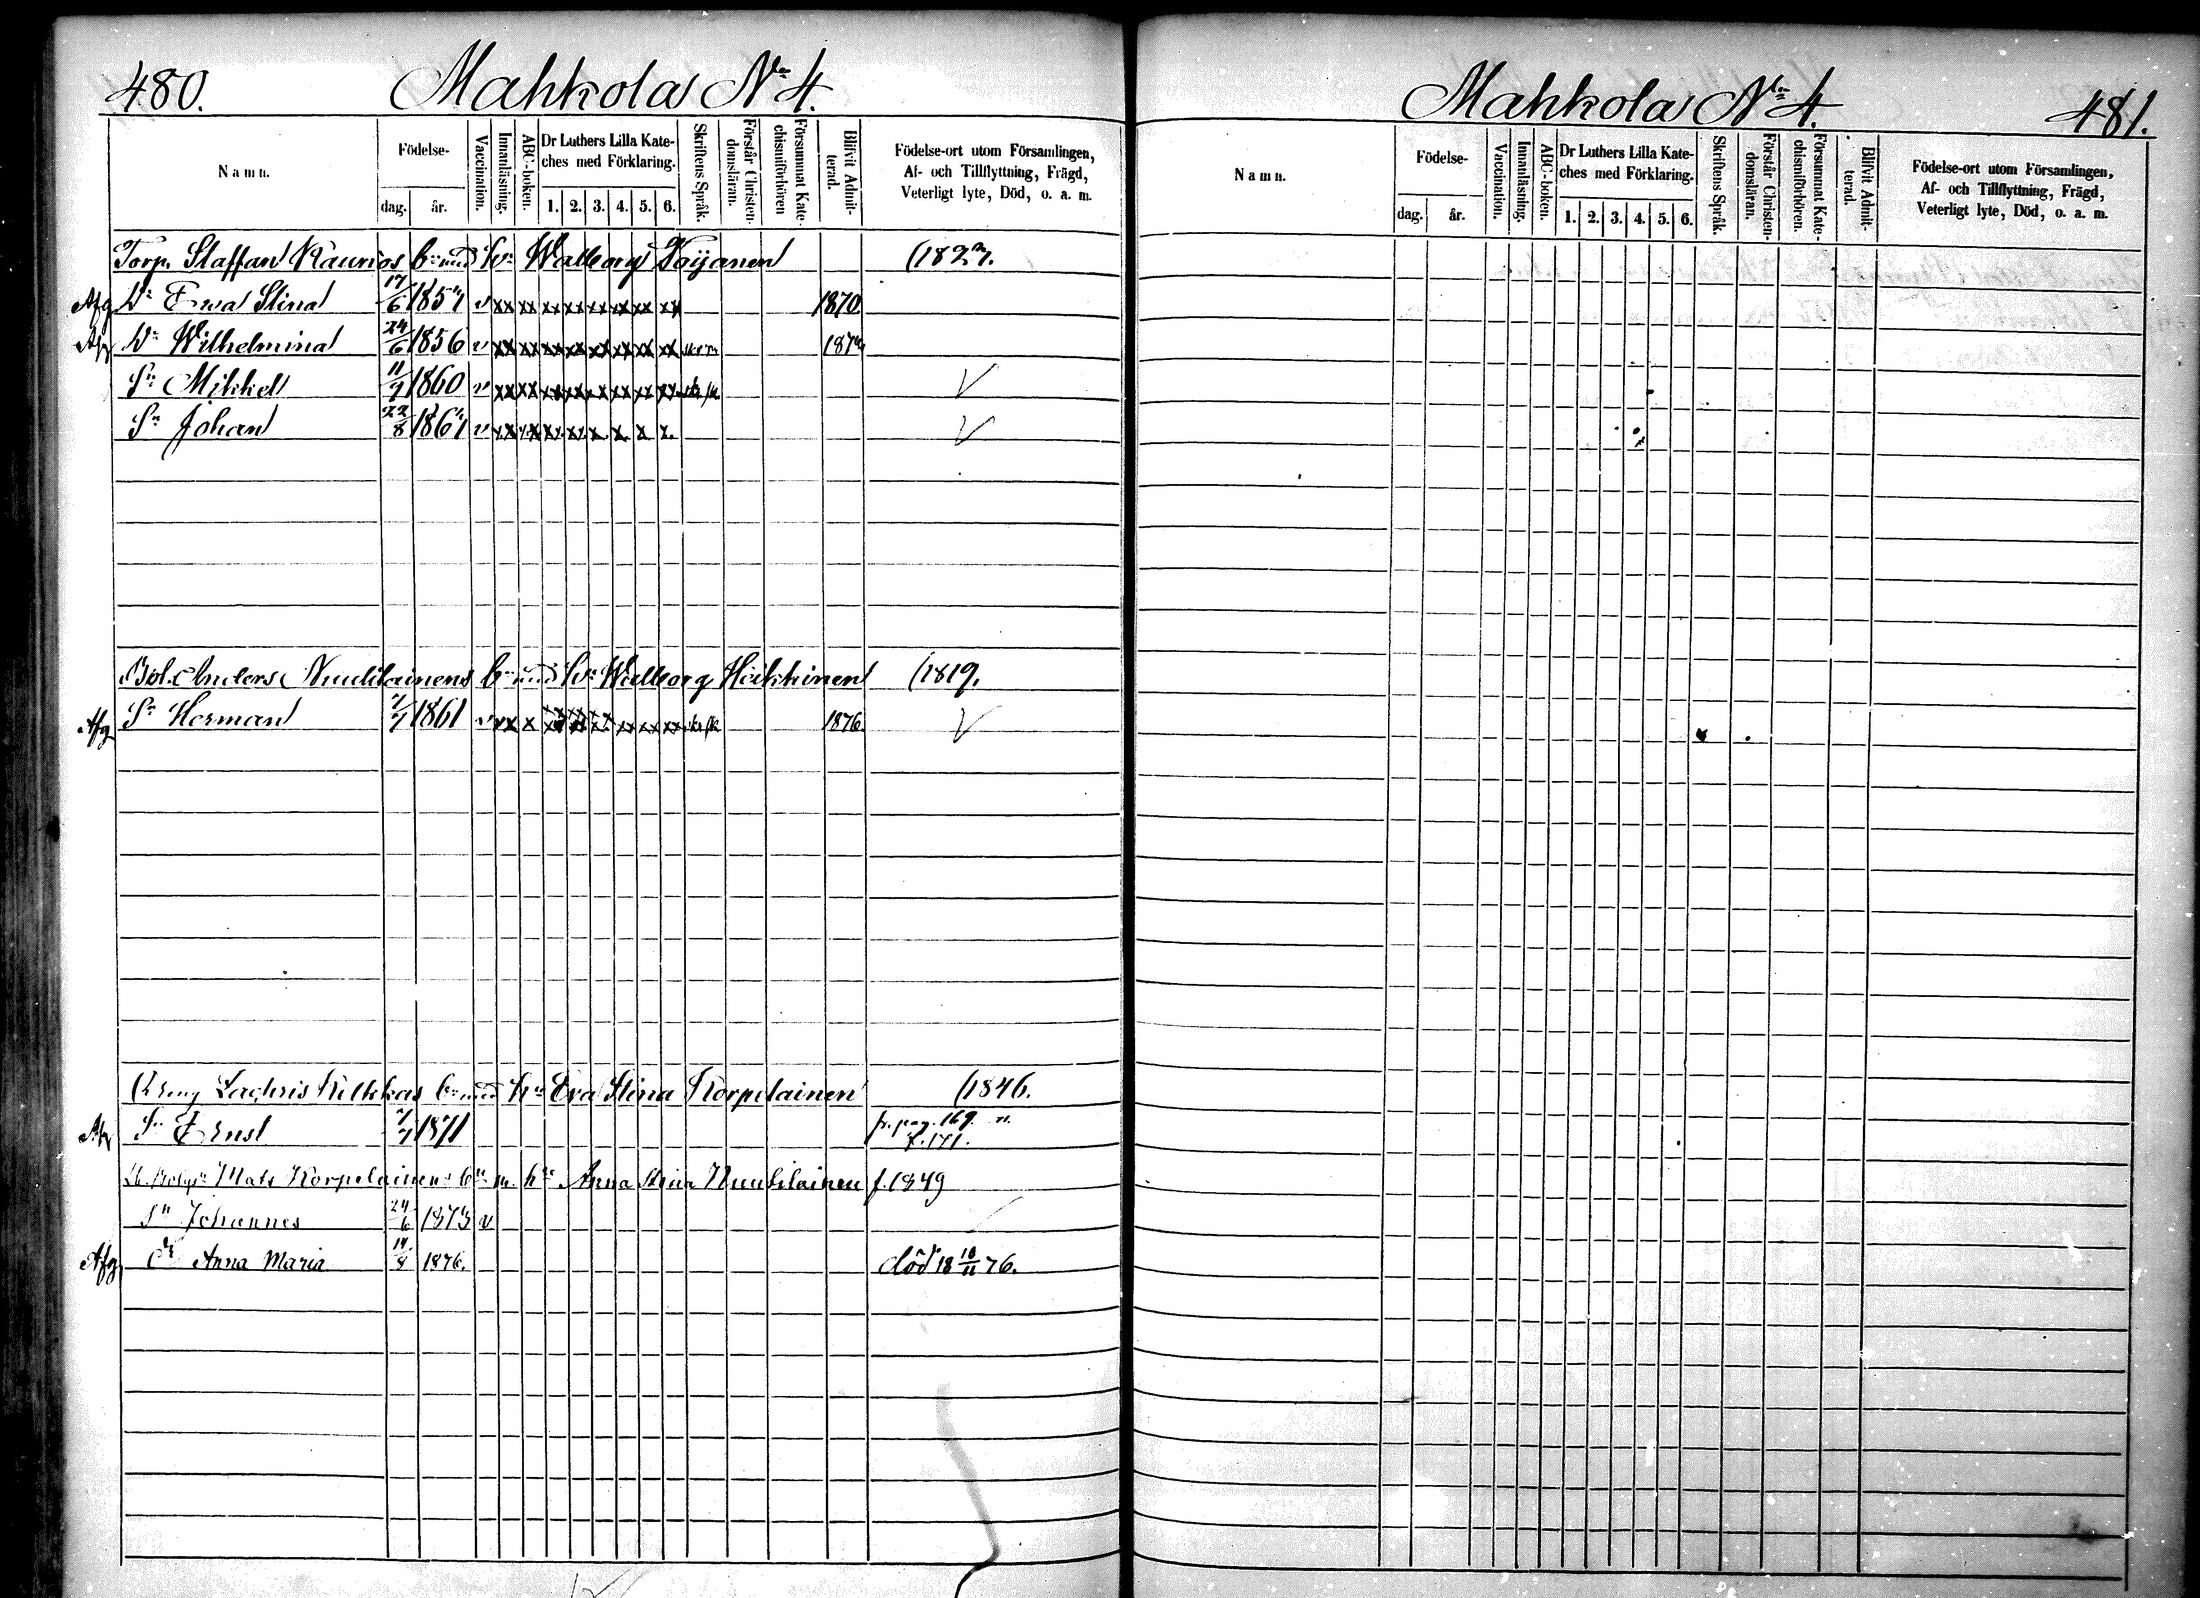 480. Mahkola No 4.
Namn. Födelse- dag. år. Vaccination. Innanläsning. ABC-boken. Dr Luthers Lilla Kateches med Förklaring. 1. 2. 3. 4. 5. 6. Skriftens Språk. Förstår Christendomsläran. Försummat Katechismiförhören Blifvit Admitterad. Födelse-ort utom Församlingen, Af- och Tillflyttning, Frägd, Veterligt lyte, Död, o. a. m.
Torp. Staffan Kaurios bn med hu Walborg Toijanen (1823.
Afg Dr Ewa Stina 17/6 1854 v xx xx xx xx xx xx xx xx 1870.
Afg Dr Wilhelmina 24/6 1856 v xx xx xx xx xx xx xx xx
Sn Mikkel 11/7 1860 v xx xx xx xx xx xx xx xx v
Sn Johan 22/8 1864 v xx xx xx xx x x x x. v
Anders Nuutilainens bn med hu Walborg Heikkinen (1819.
Afg Sn Herman 7/7 1861 v xx x xx xx xx xx xx xx 1876. v
Zachris Kilkkas bn med hu Eva Stina Korpelainen (1846.
Afg Sn Ernst 7/7 1871 fr. pag. 169.
f. 171.
Mats Korpelainens bn m. hu Anna Stina Nuutilainen f. 1849
Sn Johannes 24/6 1873 v
Afg dr Anna Maria 14/8 1876. död 18 10/11 76.
Mahkola No 4. 481.
Namn. Födelse- dag. år. Vaccination. Innanläsning. ABC-boken. Dr Luthers Lilla Kateches med Förklaring. 1. 2. 3. 4. 5. 6. Skriftens Språk. Förstår Christendomsläran. Försummat Katechismiförhören. Blifvit Admitterad. Födelse-ort utom Församlingen, Af- och Tillflyttning, Frägd, Veterligt lyte, Död, o. a. m.